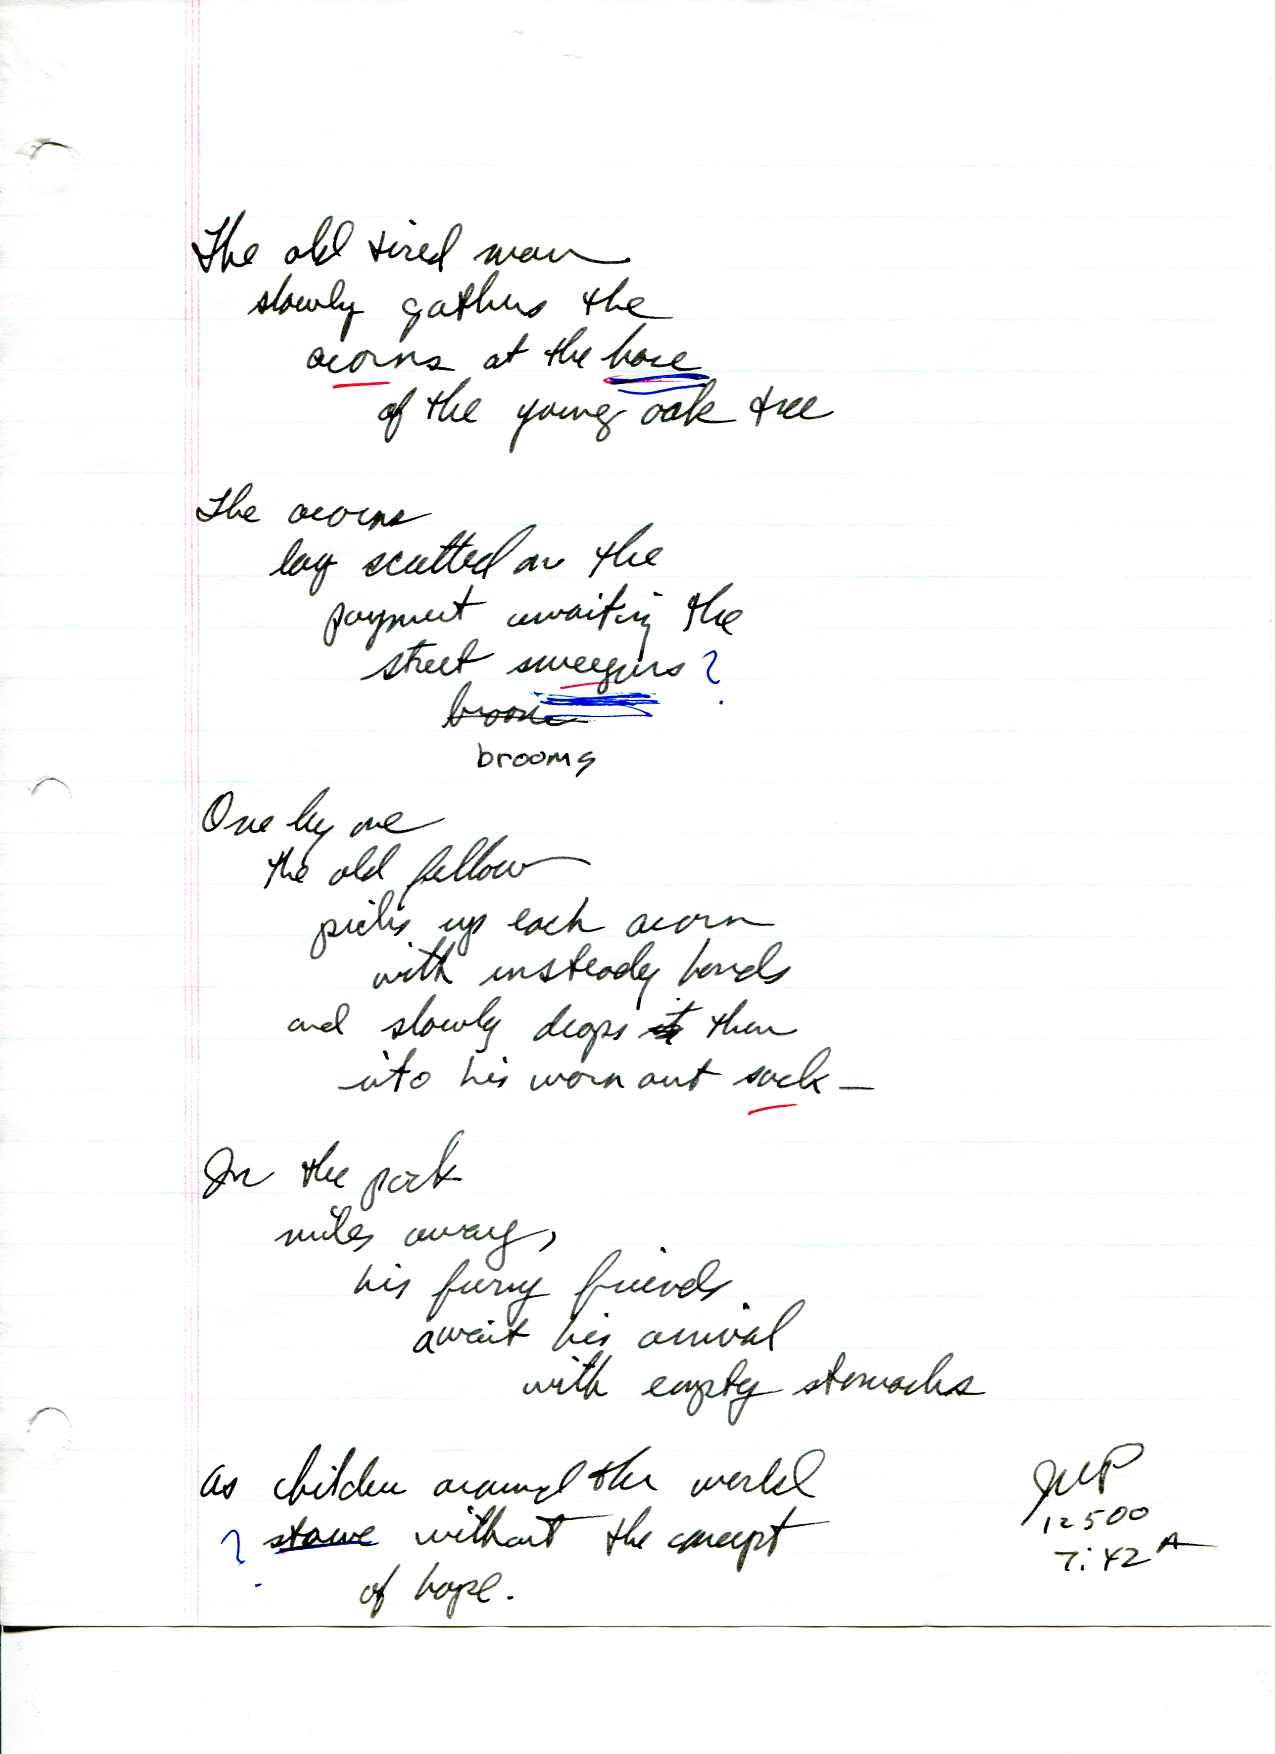 The old tired man
slowly gathers the
acorns at the base
of the young oak tree
The acorns
lay scatted on the
payment awaiting the
street sweepers?
broom
brooms
One by one
the old fellow
picks up each acorn
with unsteady hands
and slowly drops it them
into his worn out sack —
In the park
miles away,
his furry friends
await his arrival
with empty stomachs
As children around the world
? starve without the concept
of hope.
JMP
12500
7:42 A